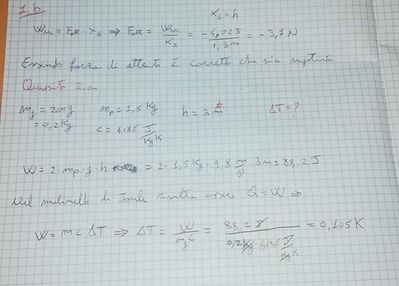 1.b
x_s = h
W_att = F_att · x_s ⇒ F_att = W_att / x_s = -4,023 J / 1,3 m = -3,1 N
Essendo forza di attrito è corretto che sia negativa
Quesito 2.a
m_g = 200 g m_p = 1,5 Kg h = 3 m ΔT = ?
= 0,2 Kg c = 4186 J / Kg K
W = 2 · m_p · g · h = 2 · 1,5 Kg · 9,8 m/s² · 3 m = 88,2 J
Nel mulinello di Joule risulta essere Q = W ⇒
W = m c ΔT ⇒ ΔT = W / m_g c = 88,2 J / 0,2 Kg · 4186 J / Kg K = 0,105 K